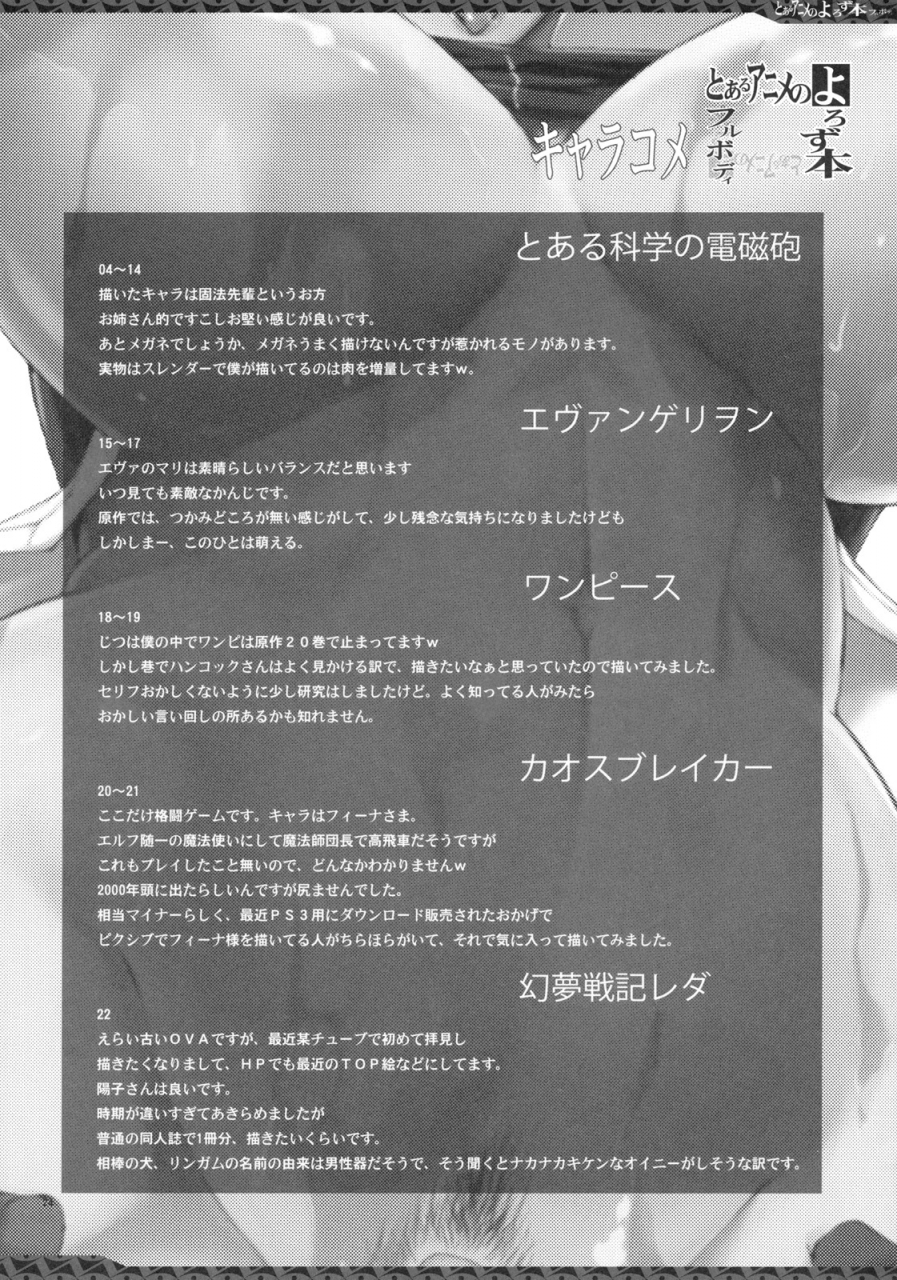 とあるアニメのよろず本
とあるアニメのよろず本
フルボディ
キャラコメ
とある科学の電磁砲
04～14
描いたキャラは固法先輩というお方
お姉さん的ですこしお堅い感じが良いです。
あとメガネでしょうか、メガネうまく描けないんですが惹かれるモノがあります。
実物はスレンダーで僕が描いてるのは肉を増量してますｗ。
エヴァンゲリヲン
15～17
エヴァのマリは素晴らしいバランスだと思います
いつ見ても素敵なかんじです。
原作では、つかみどころが無い感じがして、少し残念な気持ちになりましたけども
しかしまー、このひとは萌える。
ワンピース
18～19
じつは僕の中でワンピは原作２０巻で止まってますｗ
しかし巷でハンコックさんはよく見かける訳で、描きたいなぁと思っていたので描いてみました。
セリフおかしくないように少し研究はしましたけど。よく知ってる人がみたら
おかしい言い回しの所あるかも知れません。
カオスブレイカー
20～21
ここだけ格闘ゲームです。キャラはフィーナさま。
エルフ随一の魔法使いにして魔法師団長で高飛車だそうですが
これもプレイしたこと無いので、どんなかわかりませんｗ
2000年頭に出たらしいんですが尻ませんでした。
相当マイナーらしく、最近ＰＳ３用にダウンロード販売されたおかげで
ピクシブでフィーナ様を描いてる人がちらほらがいて、それで気に入って描いてみました。
幻夢戦記レダ
22
えらい古いＯＶＡですが、最近某チューブで初めて拝見し
描きたくなりまして、ＨＰでも最近のＴＯＰ絵などにしてます。
陽子さんは良いです。
時期が違いすぎてあきらめましたが
普通の同人誌で1冊分、描きたいくらいです。
相棒の犬、リンガムの名前の由来は男性器だそうで、そう聞くとナカナカキケンなオイニーがしそうな訳です。